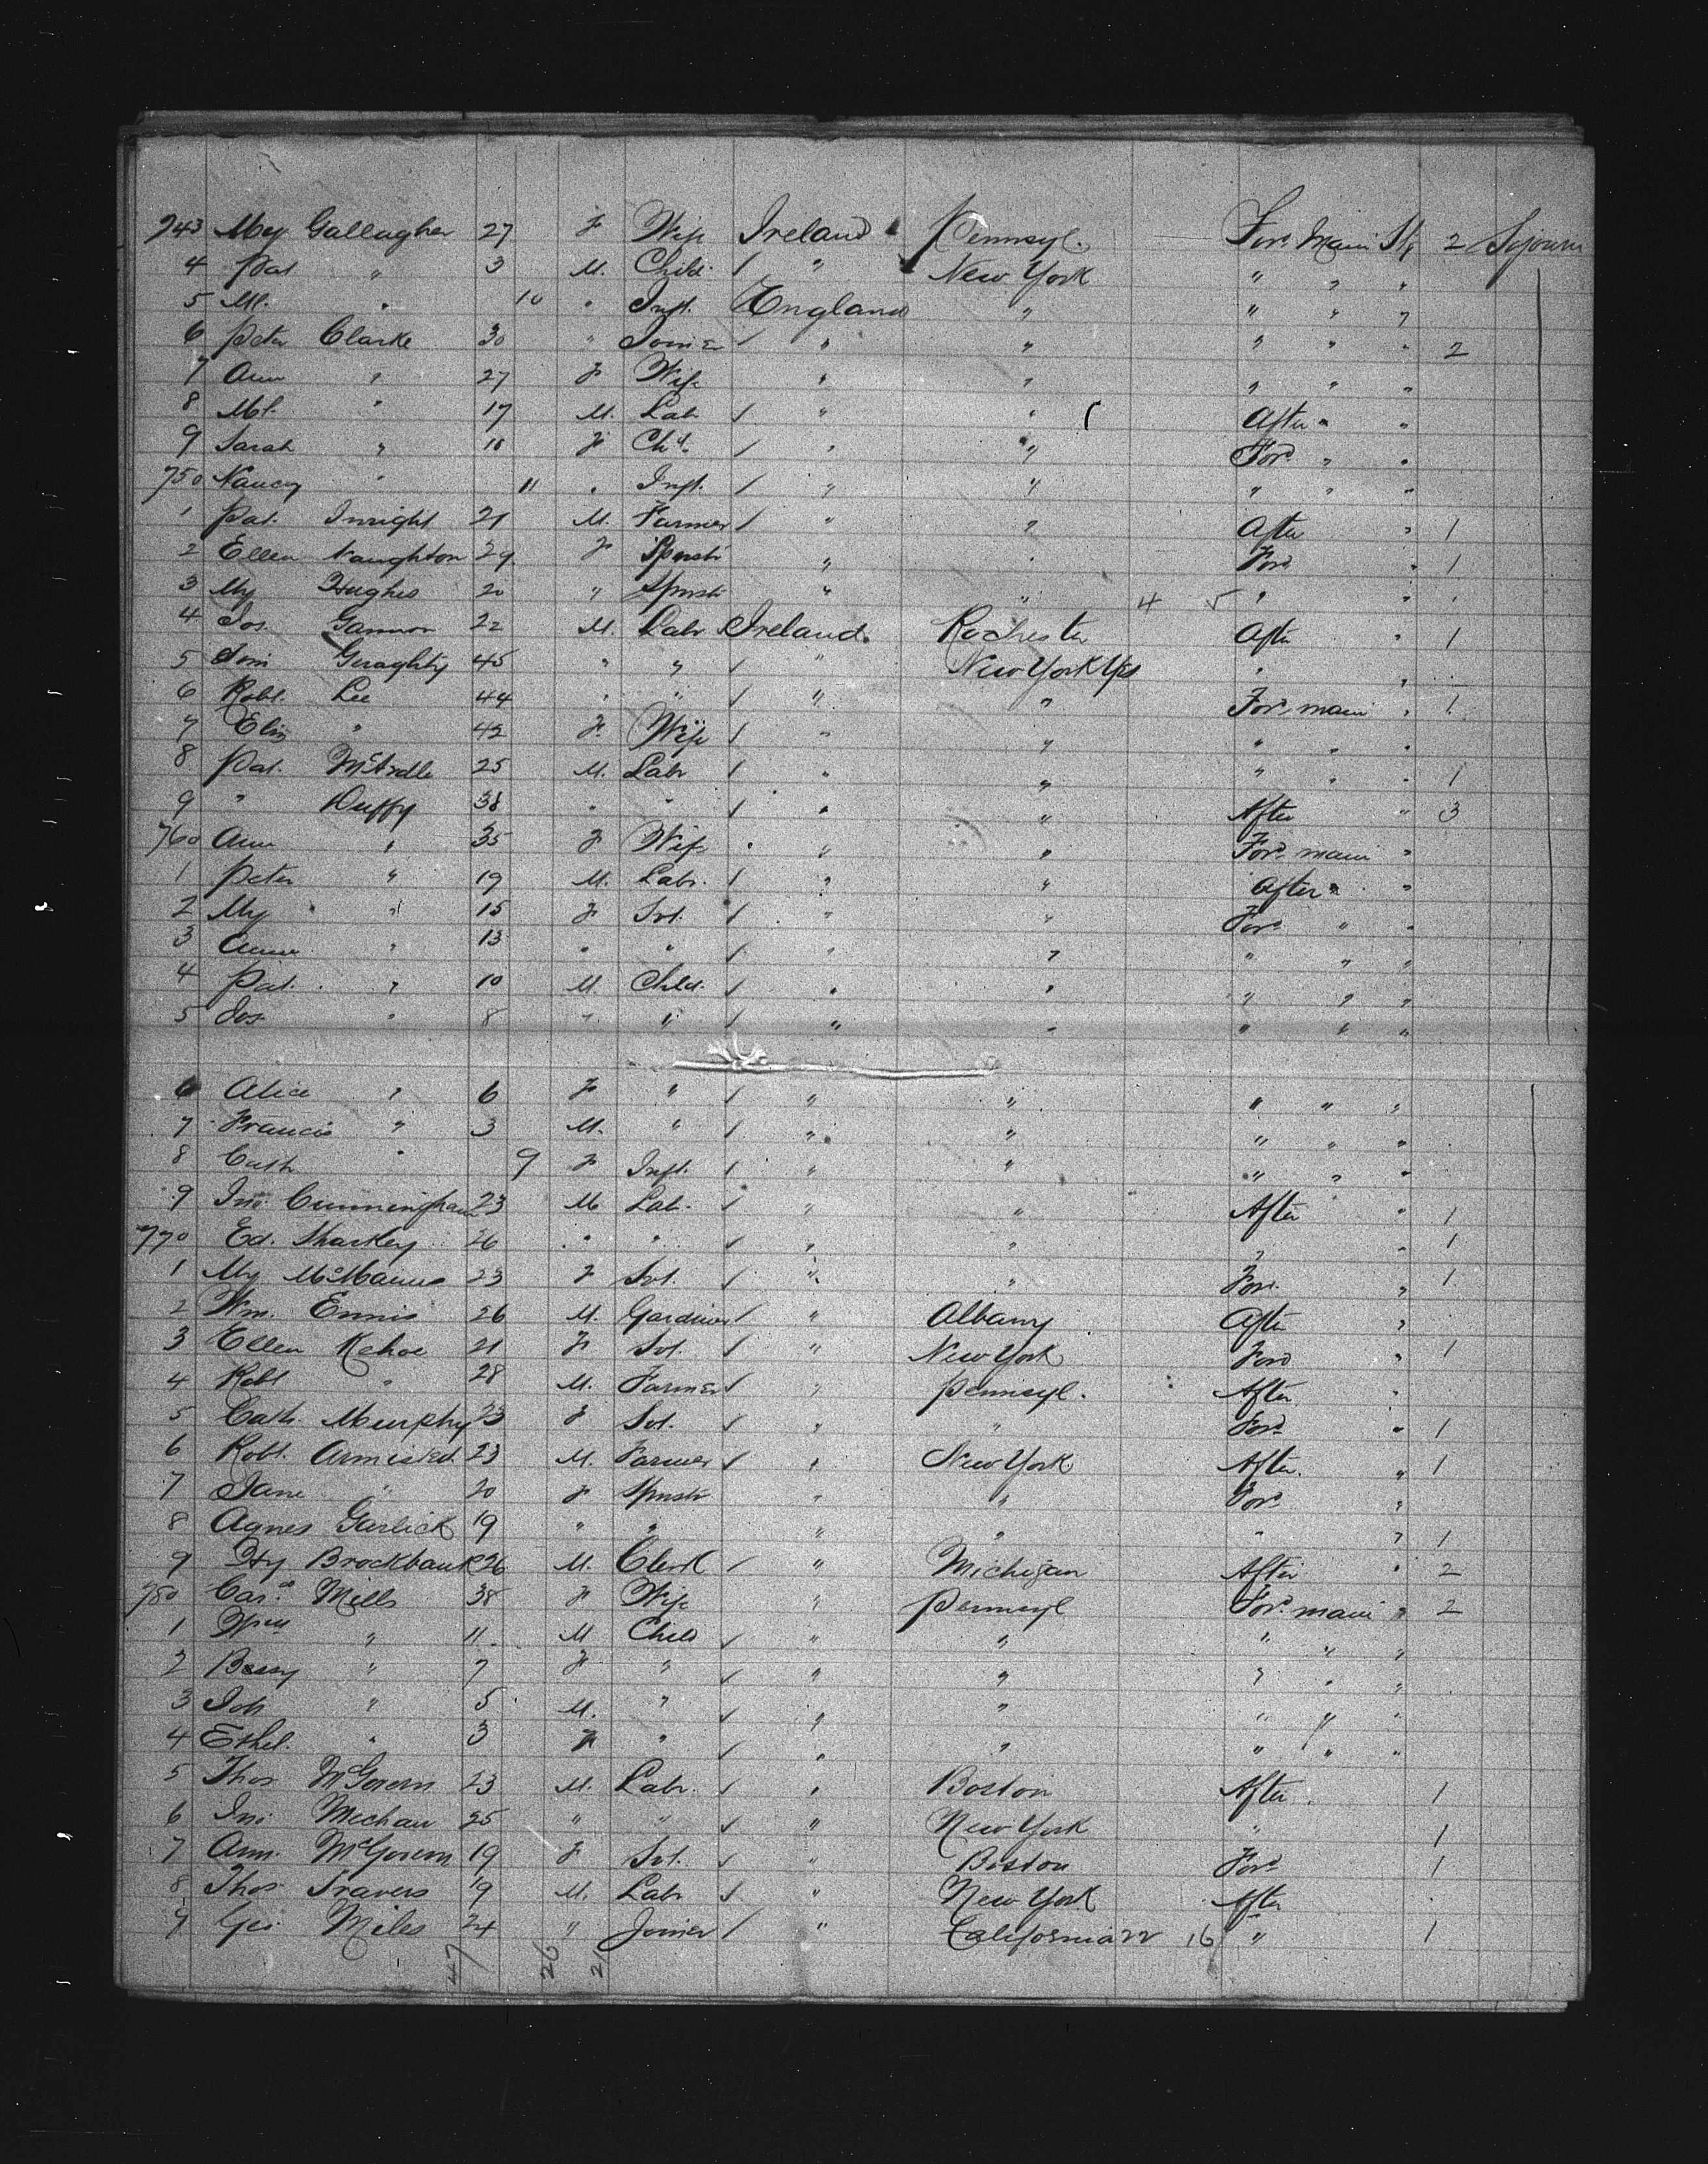 743 My Gallagher 27 F Wife Ireland Pennsyl. For. Main Stg 2 Sojourn
4 Pat " 3 M. Child / " New York " " "
5 Ml. " 10 " Inft. England " " " "
6 Peter Clarke 30 " Joiner / " " " " " 2
7 Ann " 27 F Wife " " " " "
8 Ml. " 17 M. Lab / " " After " "
9 Sarah " 10 F Chd. / " " For. " "
750 Nancy " 11 " Inft. / " " " " "
1 Pat. Inright 21 M. Farmer / " " After " 1
2 Ellen Naughton 29 F Spnstr " " Ford " 1
3 My Hughes 20 " Spnstr " " 4 5 " "
4 Jos. Gannon 22 M. Labr Ireland Rochester After " 1
5 Jno Geraghty 45 " " / " New York " "
6 Robt. Lee 44 " " / " " For. main " 1
7 Eliz " 42 F. Wife / " " " " "
8 Pat. McArdle 25 M. Labr / " " " " " 1
9 " Duffy 38 " " / " " After " 3
760 Ann " 35 F Wife " " " For. main "
1 Peter " 19 M. Labr. / " " After " "
2 My " 15 F Svt. / " " For. " "
3 Anne " 13 " " / " " " " "
4 Pat. " 10 M. Child. / " " " " "
5 Jos. " 8 " " / " " " " "
6 Alice " 6 F " / " " " " "
7 Francis " 3 M. " / " " " " "
8 Cath " 9 F Inft. / " " " " "
9 Jno. Cunningham 23 M Lab. / " " After " 1
770 Ed. Sharkey 26 " " / " " " " 1
1 My McManus 23 F Svt. / " " For. " 1
2 Wm. Ennis 26 M. Gardiner / " Albany After "
3 Ellen Kehoe 21 F Svt. / " New York Ford " 1
4 Robt " 28 M. Farmer / " Pennsyl. After "
5 Cath. Murphy 23 F Svt. / " " Ford " 1
6 Robt. Armisted 23 M. Farmer / " New York After. " 1
7 Jane " 20 F Spnstr " " For. "
8 Agnes Garlick 19 " " " " " " 1
9 Hy Brockbank 26 M. Clerk / " Michigan After " 2
780 Car. Mills 38 F Wife " Pennsyl For. main " 2
1 Wm " 11 M Child / " " " " "
2 Bessy " 7 F " / " " " " "
3 Joh " 5 M. " / " " " " "
4 Ethel. " 3 F " / " " " " "
5 Thos McGovern 23 M. Labr. / " Boston After 1
6 Jno Mechan 25 " " / " New York " 1
7 Ann. McGovern 19 F Svt. / " Boston For. 1
8 Thos Travers 19 M. Labr / " New York After
9 Geo. Miles 24 " Joiner / " California 22 16 " 1
47 26 21